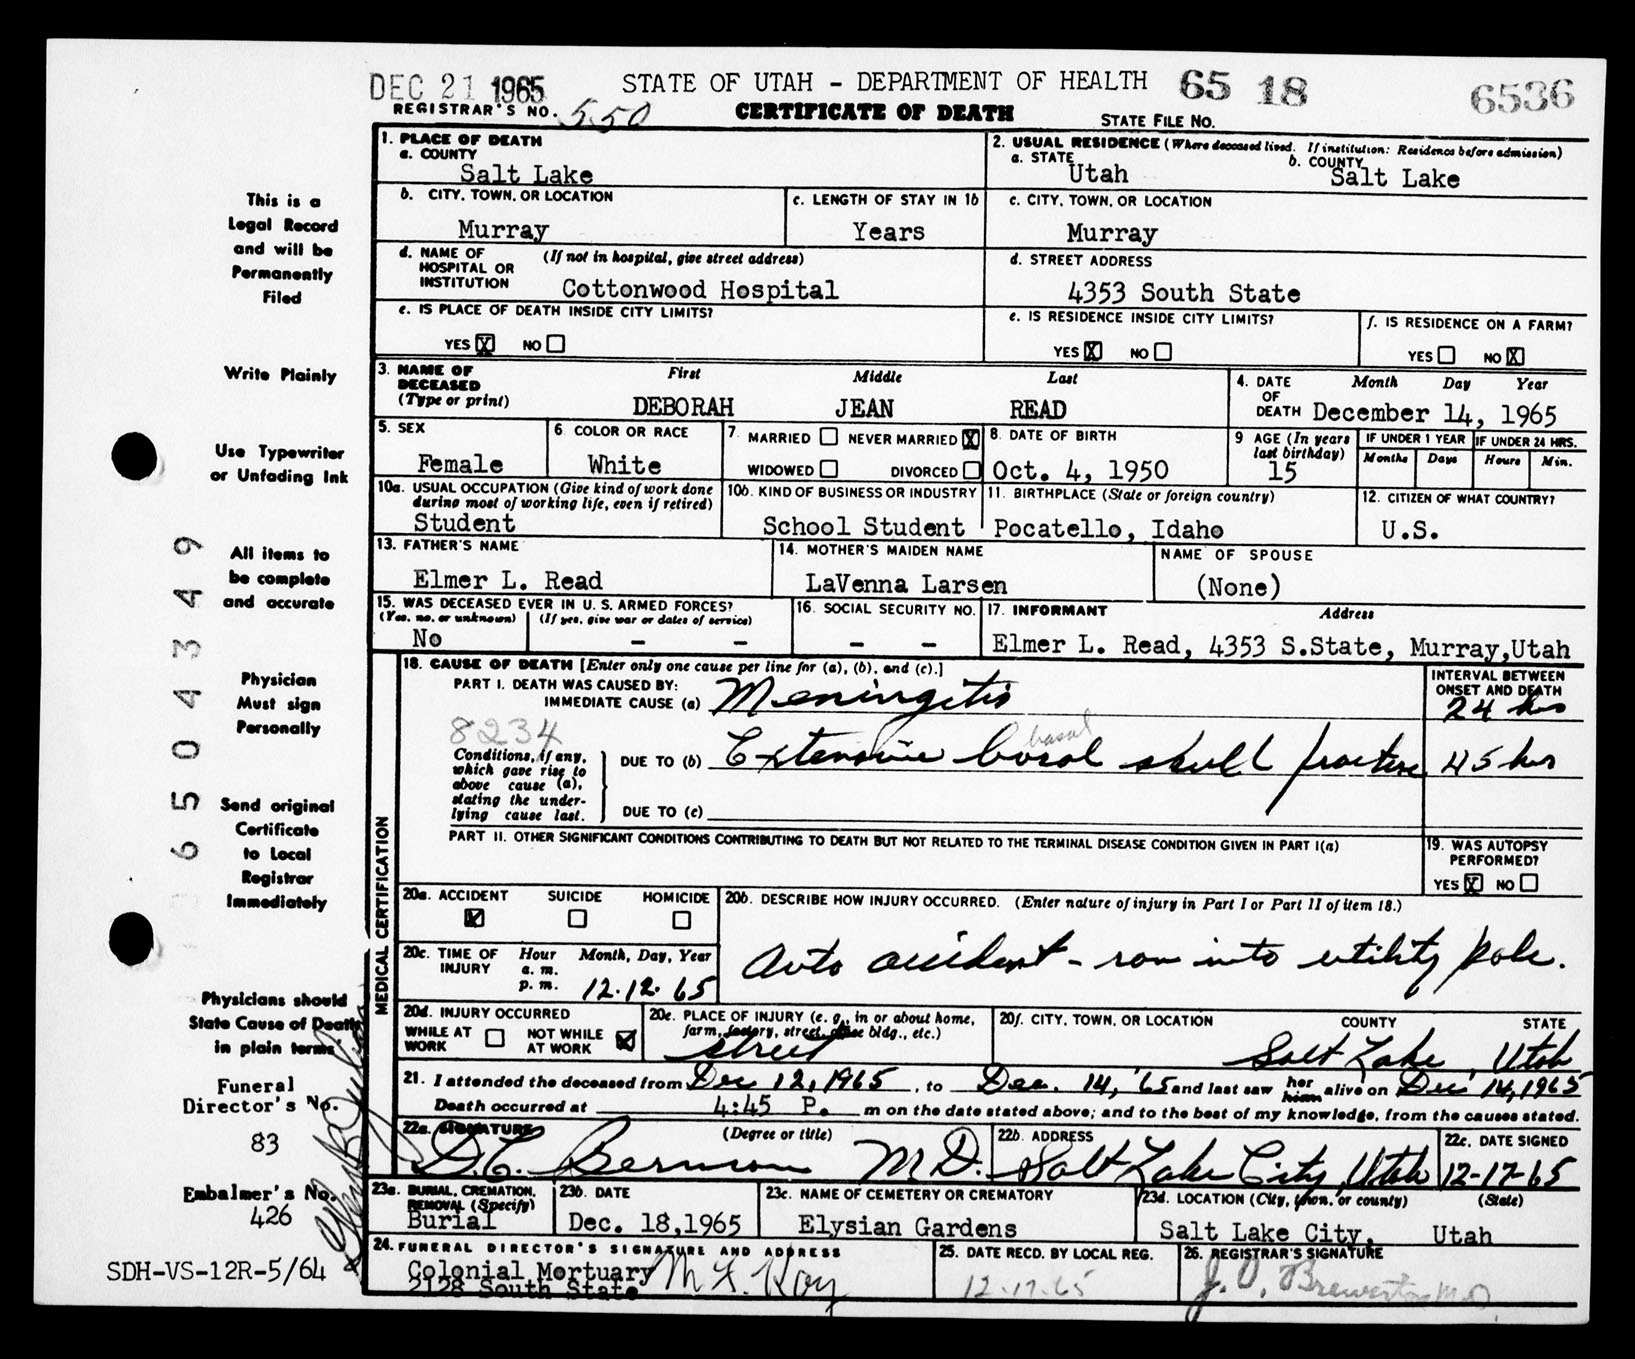 DEC 21 1965 STATE OF UTAH - DEPARTMENT OF HEALTH 65 18 6536
REGISTRAR'S NO. 550 CERTIFICATE OF DEATH STATE FILE NO.
1. PLACE OF DEATH
a. COUNTY
Salt Lake
2. USUAL RESIDENCE (Where deceased lived. If institution: Residence before admission)
a. STATE b. COUNTY
Utah Salt Lake
b. CITY, TOWN, OR LOCATION
Murray
c. LENGTH OF STAY IN 1b
Years
c. CITY, TOWN, OR LOCATION
Murray
d. NAME OF (If not in hospital, give street address)
HOSPITAL OR
INSTITUTION Cottonwood Hospital
d. STREET ADDRESS
4353 South State
e. IS PLACE OF DEATH INSIDE CITY LIMITS?
YES X NO
e. IS RESIDENCE INSIDE CITY LIMITS?
YES X NO
f. IS RESIDENCE ON A FARM?
YES NO X
3. NAME OF First Middle Last
DECEASED
(Type or print) DEBORAH JEAN READ
4. DATE Month Day Year
OF
DEATH December 14, 1965
5. SEX
Female
6. COLOR OR RACE
White
7. MARRIED NEVER MARRIED X
WIDOWED DIVORCED
8. DATE OF BIRTH
Oct. 4, 1950
9 AGE (In years
last birthday)
15
IF UNDER 1 YEAR IF UNDER 24 HRS.
Months Days Hours Min.
10a. USUAL OCCUPATION (Give kind of work done
during most of working life, even if retired)
Student
10b. KIND OF BUSINESS OR INDUSTRY
School Student
11. BIRTHPLACE (State or foreign country)
Pocatello, Idaho
12. CITIZEN OF WHAT COUNTRY?
U.S.
13. FATHER'S NAME
Elmer L. Read
14. MOTHER'S MAIDEN NAME
LaVenna Larsen
NAME OF SPOUSE
(None)
15. WAS DECEASED EVER IN U. S. ARMED FORCES?
(Yes, no, or unknown) (If yes, give war or dates of service)
No - -
16. SOCIAL SECURITY NO.
- -
17. INFORMANT Address
Elmer L. Read, 4353 S.State, Murray,Utah
MEDICAL CERTIFICATION
18. CAUSE OF DEATH [Enter only one cause per line for (a), (b), and (c).]
PART I. DEATH WAS CAUSED BY:
IMMEDIATE CAUSE (a) Meningitis
INTERVAL BETWEEN
ONSET AND DEATH
24 hrs
8234
Conditions, if any,
which gave rise to
above cause (a),
stating the under-
lying cause last.
basal
DUE TO (b) Extensive basal skull fracture 45 hrs
DUE TO (c)
PART II. OTHER SIGNIFICANT CONDITIONS CONTRIBUTING TO DEATH BUT NOT RELATED TO THE TERMINAL DISEASE CONDITION GIVEN IN PART I(a)
19. WAS AUTOPSY
PERFORMED?
YES X NO
20a. ACCIDENT SUICIDE HOMICIDE
20b. DESCRIBE HOW INJURY OCCURRED. (Enter nature of injury in Part I or Part II of item 18.)
Auto accident - ran into utility pole.
20c. TIME OF Hour Month, Day, Year
INJURY a. m.
p. m. 12.12.65
20d. INJURY OCCURRED
WHILE AT NOT WHILE
WORK AT WORK
20e. PLACE OF INJURY (e. g., in or about home,
farm, factory, street, office bldg., etc.)
street
20f. CITY, TOWN, OR LOCATION COUNTY STATE
Salt Lake, Utah
21. I attended the deceased from Dec 12, 1965, to Dec. 14, '65 and last saw her him alive on Dec 14, 1965
Death occurred at 4:45 P. m on the date stated above; and to the best of my knowledge, from the causes stated.
22a. SIGNATURE (Degree or title)
M D.
22b. ADDRESS
Salt Lake City, Utah
22c. DATE SIGNED
12-17-65
23a. BURIAL, CREMATION,
REMOVAL (Specify)
Burial
23b. DATE
Dec. 18,1965
23c. NAME OF CEMETERY OR CREMATORY
Elysian Gardens
23d. LOCATION (City, town, or county) (State)
Salt Lake City, Utah
24. FUNERAL DIRECTOR'S SIGNATURE AND ADDRESS
Colonial Mortuary
2128 South State
25. DATE RECD. BY LOCAL REG.
12.17.65
26. REGISTRAR'S SIGNATURE
J. O. Brewerton M.D
This is a
Legal Record
and will be
Permanently
Filed
Write Plainly
Use Typewriter
or Unfading Ink
All items to
be complete
and accurate
Physician
Must sign
Personally
Send original
Certificate
to Local
Registrar
Immediately
Physicians should
State Cause of Death
in plain terms.
Funeral
Director's No.
83
Embalmer's No.
426
SDH-VS-12R-5/64
650 4349